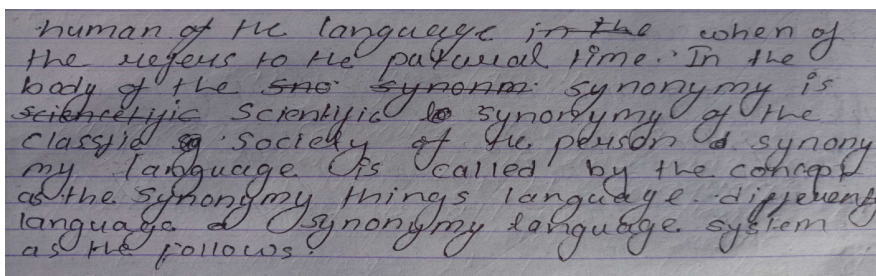 human of the language in the when of
the refers to the patural time. In the
body of the sno synonm synonymy is
sciencetific Scientific synonymy of the
classfic society of the person d synony
my language is called by the concept
as the synonymy things language. different
language d synonymy language system
as the follows.